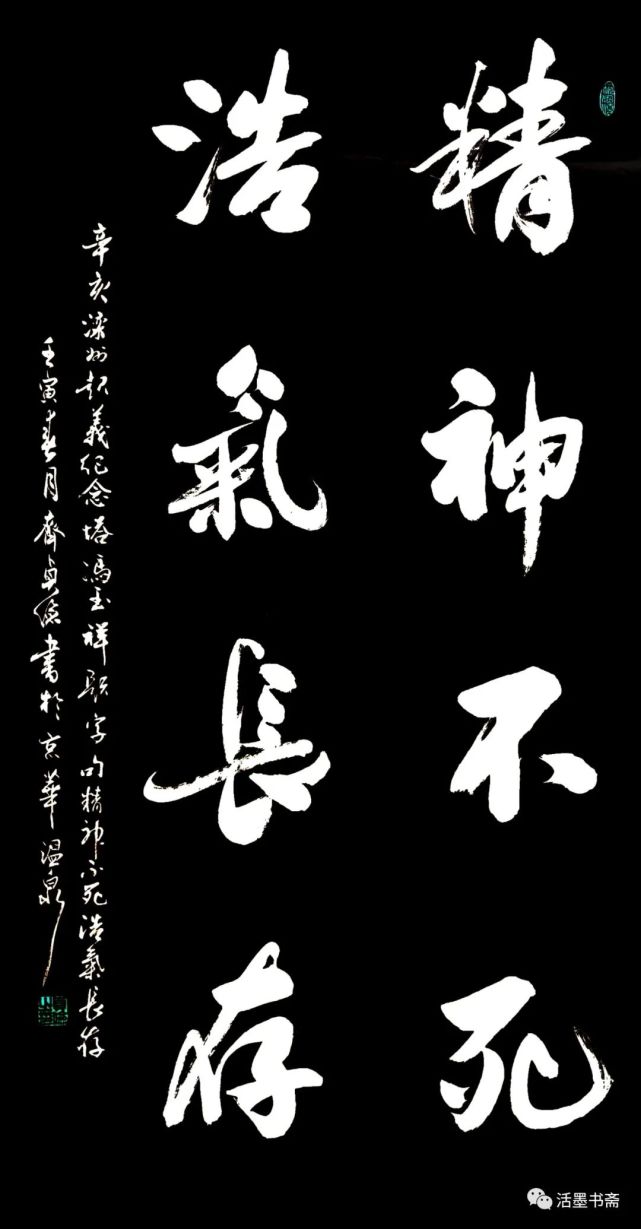 精神不死
浩氣長存
辛亥滦州起義纪念塔馮玉祥題字句精神不死浩氣長存
壬寅春月齊貞源書於京華温泉
活墨书斋